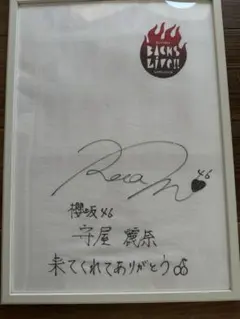 BACKS
LIVE!!
Rena 46
櫻坂46
守屋 麗奈
来てくれてありがとう